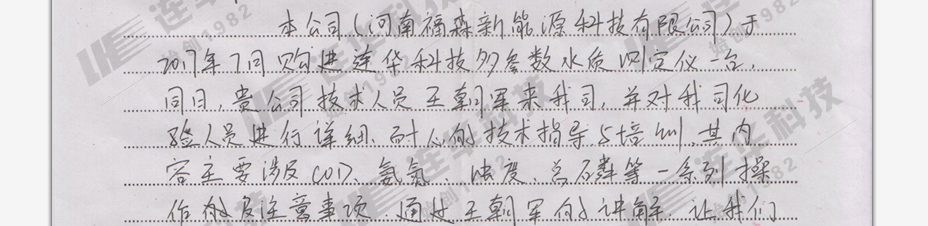 本公司(河南福森新能源科技有限公司)于
2017年7月购进连华科技多参数水质测定仪一台,
同日,贵公司技术人员王朝军来我司,并对我司化
验人员进行详细、耐心的技术指导与培训,其内
容主要涉及COD、氨氮、浊度、总磷等一系列操
作以及注意事项.通过王朝军的讲解,让我们
连华科技
始创1982